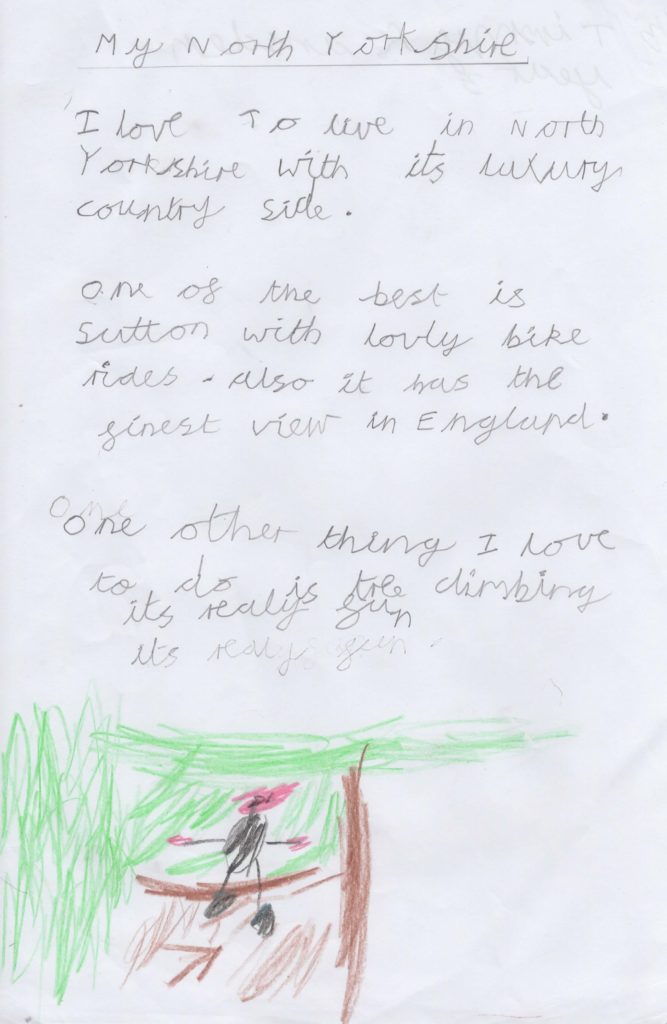 My North Yorkshire
I love To live in North
Yorkshire with its luxury
country side.
One of the best is
Sutton with lovly bike
rides. also it has the
finest view in England.
One other thing I love
to do is tree climbing
its realy fun
its realy fun